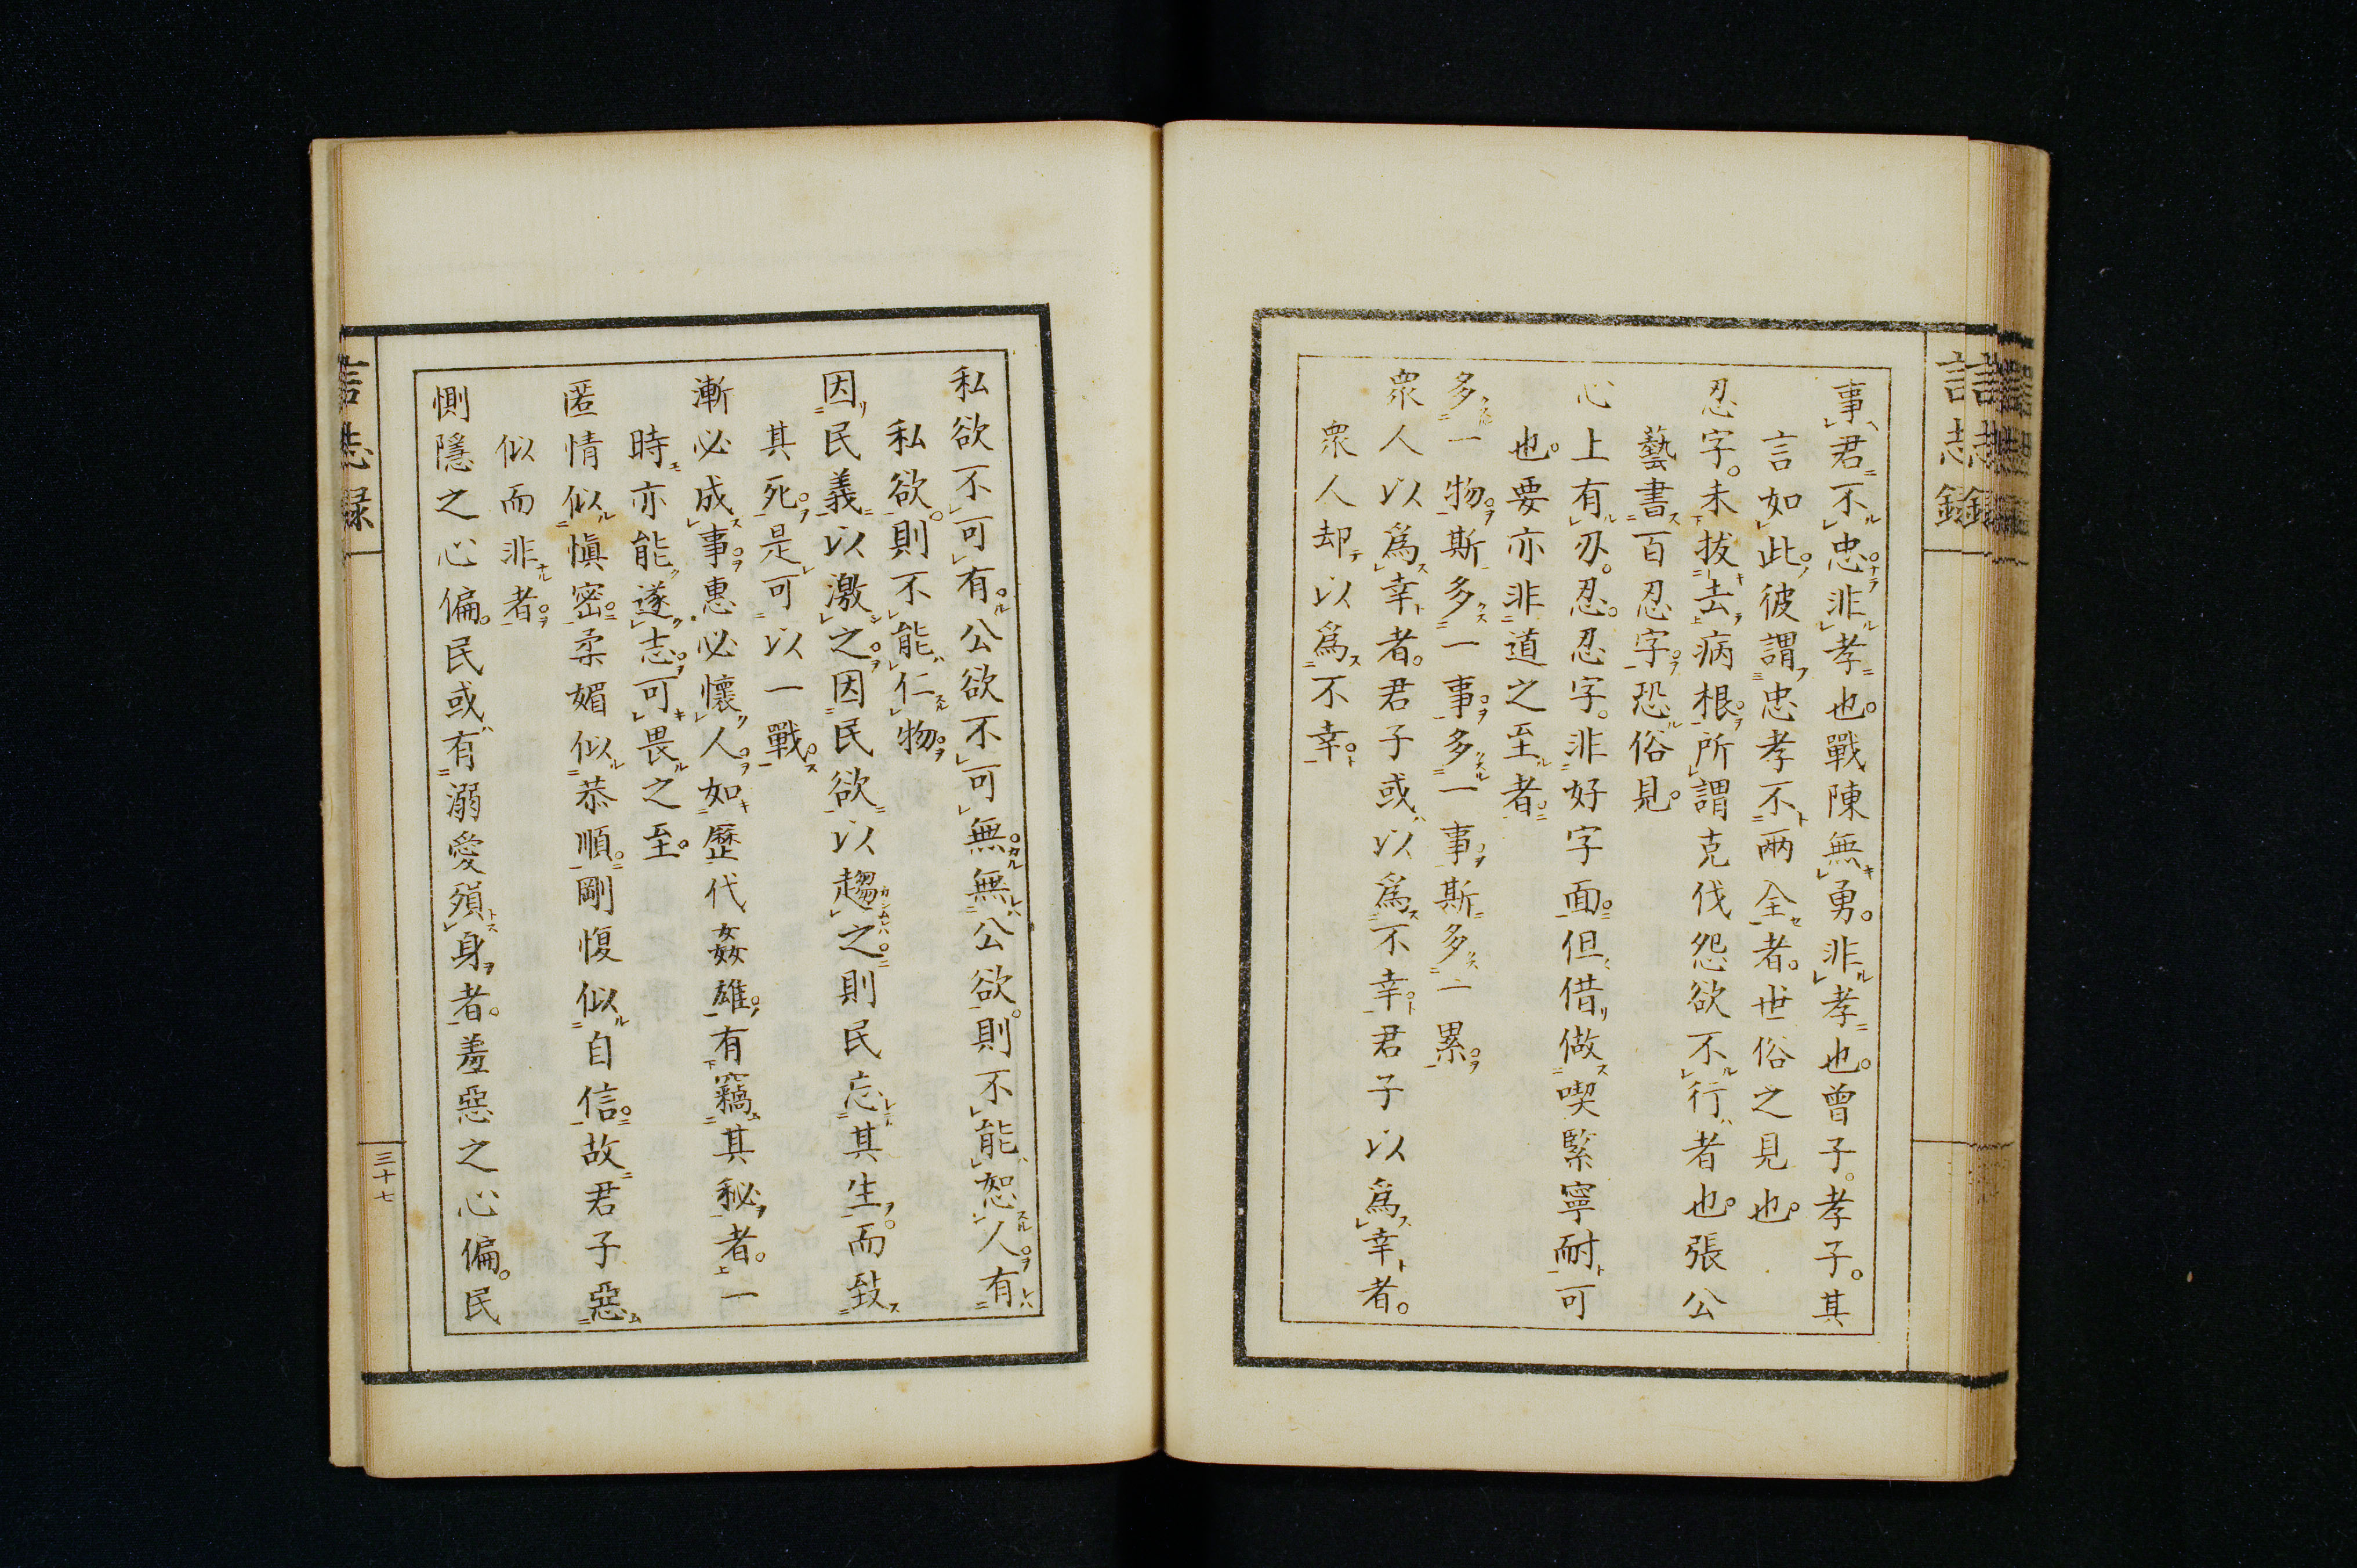 言志録
事君不忠非孝也。戰陳無勇。非孝也。曾子。孝子。其
言如此彼謂忠孝不兩全者。世俗之見也
忍字。未拔去病根所謂克伐怨欲不行者也張公
藝書百忍字恐俗見
心上有刃。忍。忍字。非好字面但借做喫緊寧耐可
也。要亦非道之至者
多一物斯多一事多一事斯多一累
衆人以爲幸者。君子或以爲不幸君子以爲幸者。
衆人却以爲不幸
私欲不可有公欲不可無無公欲。則不能恕人有
私欲。則不能仁物
因民義以激之因民欲以趨之則民忘其生。而致
其死是可以一戰
漸必成事惠必懷人如歷代姦雄有竊其秘者。一
時亦能遂志可畏之至。
匿情似愼密柔媚似恭順剛愎似自信故君子惡
似而非者
惻隱之心偏。民或有溺愛殞身者。羞惡之心偏。民
言志録
三十七